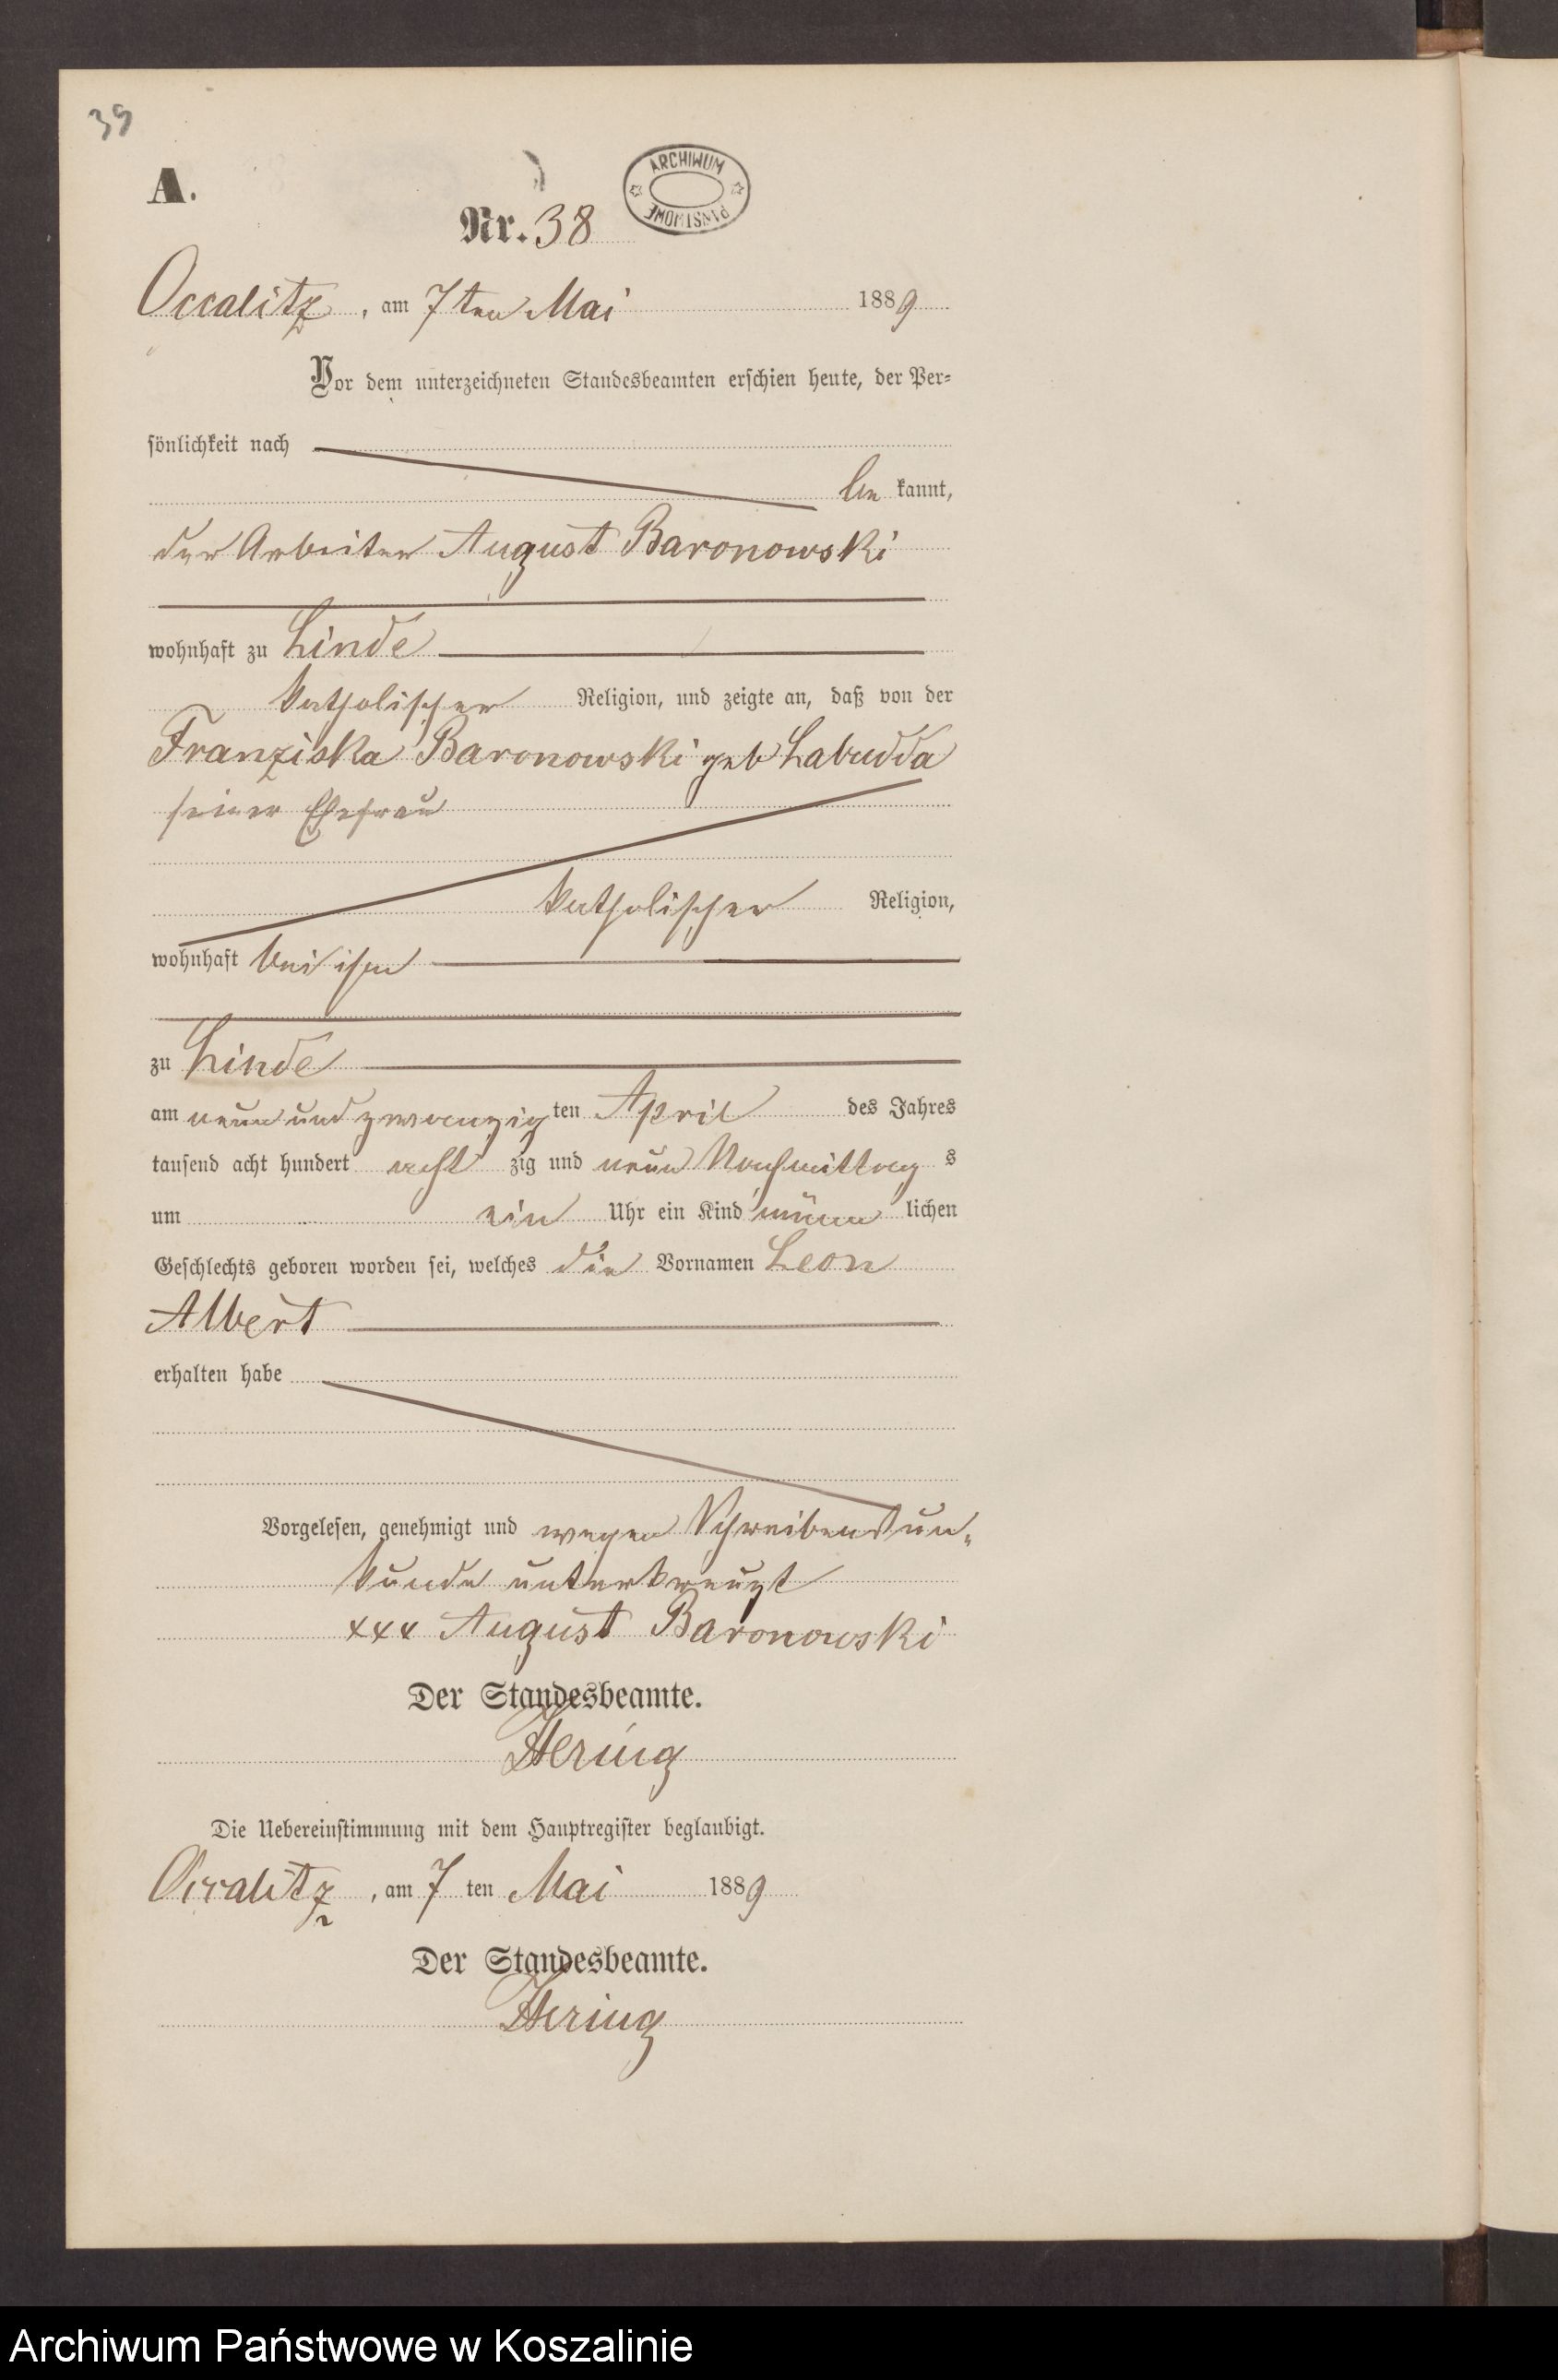 39
A.
ARCHIWUM
PAŃSTWOWE
Nr. 38
Occalitz, am 7ten Mai 1889
Vor dem unterzeichneten Standesbeamten erschien heute, der Per-
sönlichkeit nach
be kannt,
der Arbeiter August Baronowski
wohnhaft zu Linde
katholischer Religion, und zeigte an, daß von der
Franziska Baronowski geb Labudda
seiner Ehefrau
katholischer Religion,
wohnhaft bei ihm
zu Linde
am neun und zwanzig ten April des Jahres
tausend acht hundert acht zig und neun Nachmittag s
um ein Uhr ein Kind männ lichen
Geschlechts geboren worden sei, welches die Vornamen Leon
Albert
erhalten habe
Vorgelesen, genehmigt und wegen Schreibens un-
kunde unterkreuzt
xxx August Baronowski
Der Standesbeamte.
Hering
Die Uebereinstimmung mit dem Hauptregister beglaubigt.
Occalitz, am 7 ten Mai 1889
Der Standesbeamte.
Hering
Archiwum Państwowe w Koszalinie